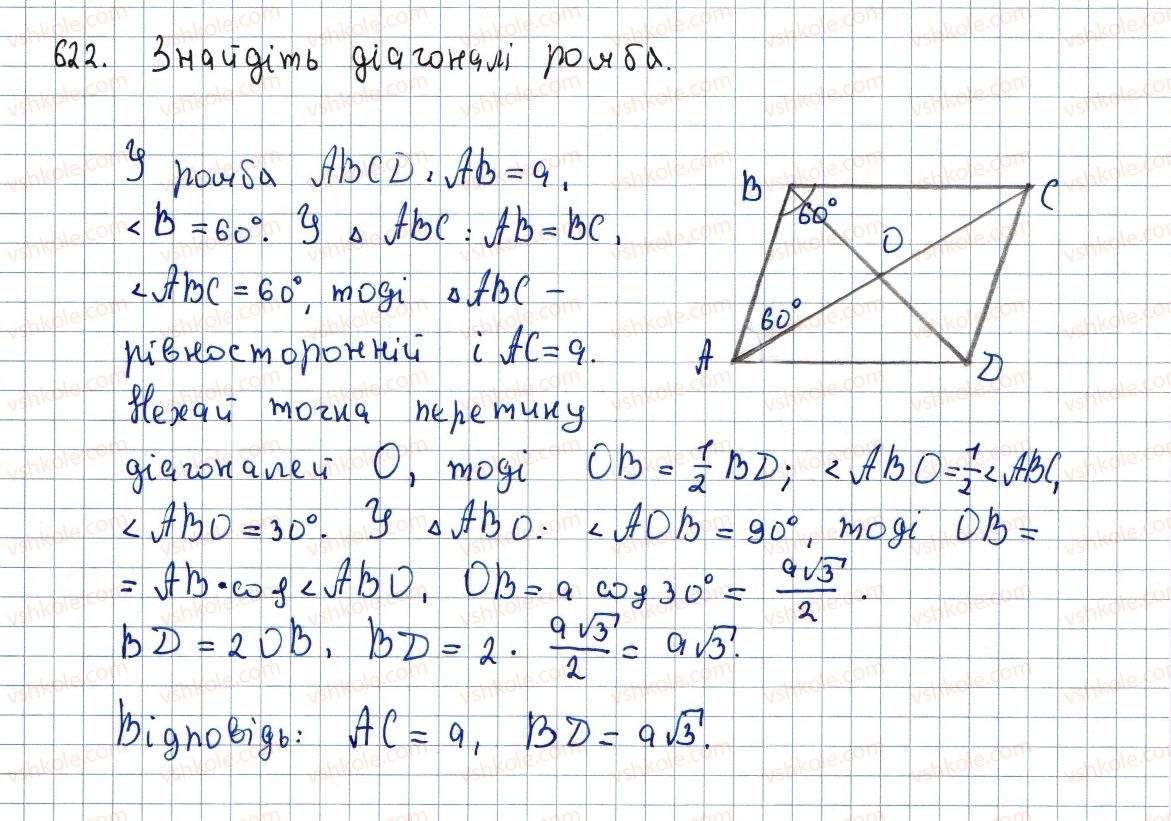 622. Знайдіть діагоналі ромба.
У ромба ABCD, AB = a,
<B = 60°. У △ ABC : AB = BC,
<ABC = 60°, тоді △ABC –
рівносторонній і AC = a.
Нехай точка перетину
діагоналей O, тоді OB = 1/2 BD; <ABO = 1/2 <ABC,
<ABO = 30°. У △ABO: <AOB = 90°, тоді OB =
= AB · cos <ABO, OB = a cos 30° = a√3/2.
BD = 2OB, BD = 2 · a√3/2 = a√3.
Відповідь: AC = a, BD = a√3.
B
C
60°
O
60°
A
D
vshkole.com